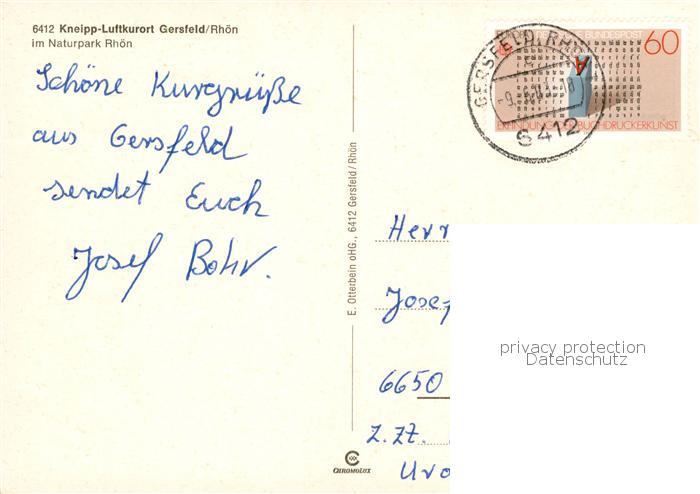 6412 Kneipp-Luftkurort Gersfeld/Rhön
im Naturpark Rhön
Schöne Kurgrüße
aus Gersfeld
sendet Euch
Josef Bohr.
E. Otterbein oHG., 6412 Gersfeld / Rhön
CHROMOLUX
DEUTSCHE BUNDESPOST
60
ERFINDUNG DER BUCHDRUCKERKUNST
GERSFELD, RHÖN
6412
Herr
Josef
6650
z. Zt.
privacy protection
Datenschutz